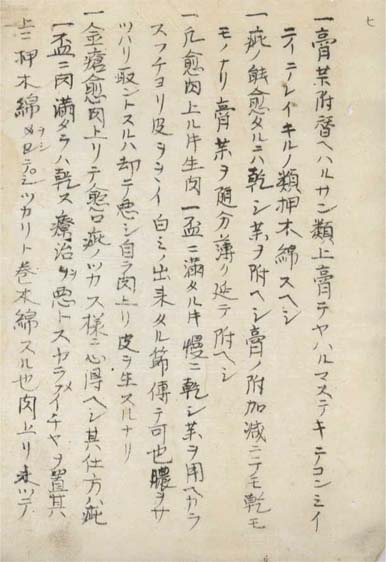 七
一膏薬附替ヘハルサン類上膏テヤハルマステキニコンミイ
ニイニシイキルノ類押木綿スヘシ
一疵ノ餘愈タルニハ乾シ薬ヲ附ヘシ膏ノ附加減ニテモ乾モ
モノナリ膏薬ヲ随分薄ク延テ附ヘシ
一元愈肉上ル牛生肉一盃ニ満タル牛慢ニ乾シ薬ヲ用ヘカラ
スフチヨリ皮ヲヽイ白ミノ出来タル節傳テ可也膿ヲサ
ツハリ取ントスルハ却テ悪シ自ラ肉上リ皮ヲ生スルナリ
一金瘡愈肉上リテノ愈口疵ノツカス様ニ心得ヘシ其仕方ハ疵
一盃ニ肉満タラハ乾ス療治ヲ悪トスカラメイチヤヲ置其
上ニ押木綿ヲシツカリト巻木綿スル也肉上リ来ツテ